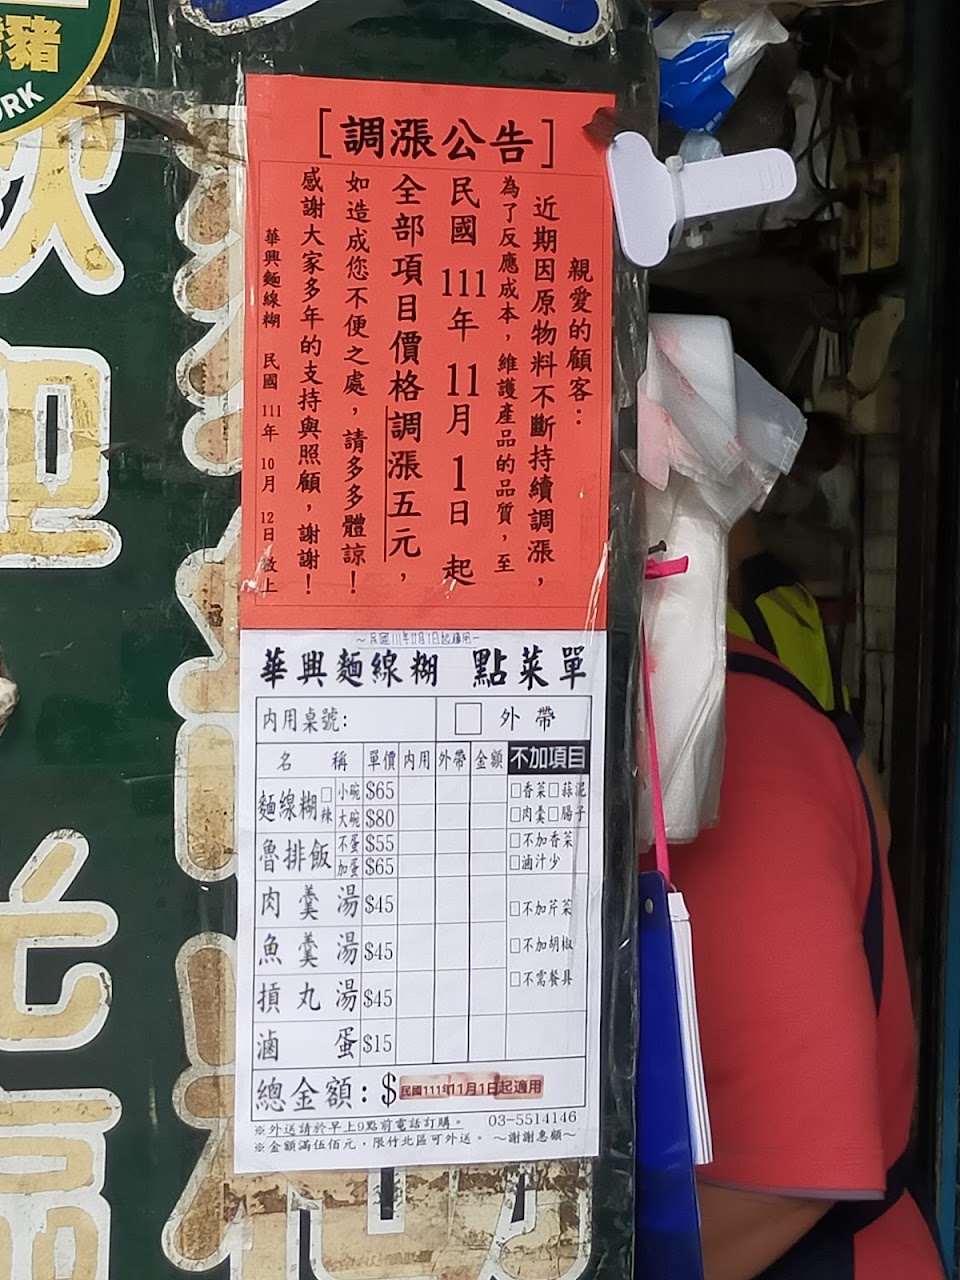 豬
ORK
[調漲公告]
親愛的顧客：
近期因原物料不斷持續調漲，
為了反應成本，維護產品的品質，至
民國 111 年 11 月 1 日 起
全部項目價格調漲五元，
如造成您不便之處，請多多體諒！
感謝大家多年的支持與照顧，謝謝！
華興麵線糊 民國 111 年 10 月 12 日 敬上
~民國111年11月1日起適用~
華興麵線糊 點菜單
內用桌號: □ 外帶
名稱 單價 內用 外帶 金額 不加項目
麵線糊 □辣 小碗 $65 □香菜□蒜泥
大碗 $80 □肉羹□腸子
魯排飯 不蛋 $55 □不加香菜
加蛋 $65 □滷汁少
肉羹湯 $45 □不加芹菜
魚羹湯 $45 □不加胡椒
摃丸湯 $45 □不需餐具
滷蛋 $15
總金額: $ 民國111年11月1日起適用
※外送請於早上9點前電話訂購。 03-5514146
※金額滿伍佰元，限竹北區可外送。 ~謝謝惠顧~